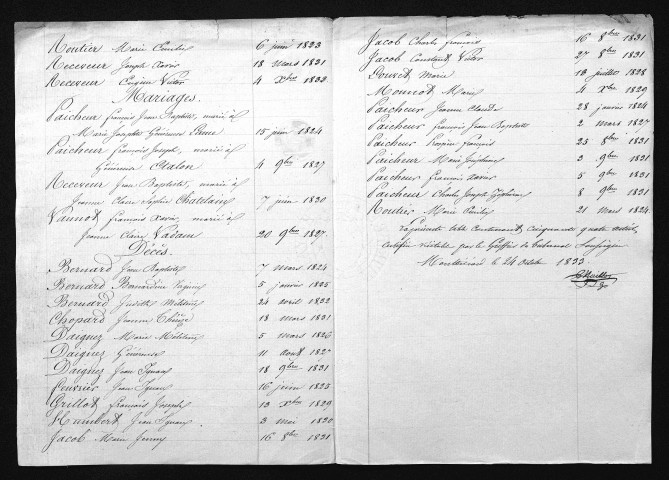 Routier Marie Emilie 6 juin 1823
Receveur Joseph Xavier 18 mars 1831
Receveur Eugène Victor 4 Xbre 1832
Mariages.
Paicheur françois Jean Baptiste, marié à
Marie Josephte Généreuse 15 juin 1824
Paicheur françois Joseph, marié à
Généreuse Etalon 4 9bre 1827
Receveur Jean Baptiste, marié à
Jeanne Claire Sophie Chatelain 7 juin 1830
Vannot françois Xavier, marié à
Jeanne Claire Vadam 20 9bre 1827
Décès.
Bernard Jean Baptiste 7 mars 1824
Bernard Bernardine Virginie 5 janvier 1825
Bernard Judith Mélitine 24 avril 1832
Chopard Jeanne Thérèze 13 mars 1831
Daigney Marie Mélitine 5 mars 1826
Daigney Généreuse 11 aout 1827
Daigney Jean Ignace 18 9bre 1831
février Jean Ignace 16 juin 1825
Grillot françois Joseph 13 Xbre 1829
Humbert Jean Ignace 3 mai 1830
Jacob Marie Jenny 16 8bre 1831
Jacob Charles françois 16 8bre 1831
Jacob Constant Victor 27 8bre 1831
Marie 13 juillet 1828
Monnot Marie 4 Xbre 1829
Paicheur Jeanne Claude 28 janvier 1824
Paicheur françois Jean Baptiste 2 mars 1827
Paicheur françois 25 8bre 1831
Paicheur Marie Joséphine 3 9bre 1831
Paicheur françois Xavier 5 9bre 1831
Paicheur Charles Joseph 8 9bre 1831
Routier Marie Emilie 21 mars 1824
La présente table contenant cinquante quatre articles
certifiée véritable par le Greffier du tribunal soussigné
Montbéliard le 24 octobre 1833